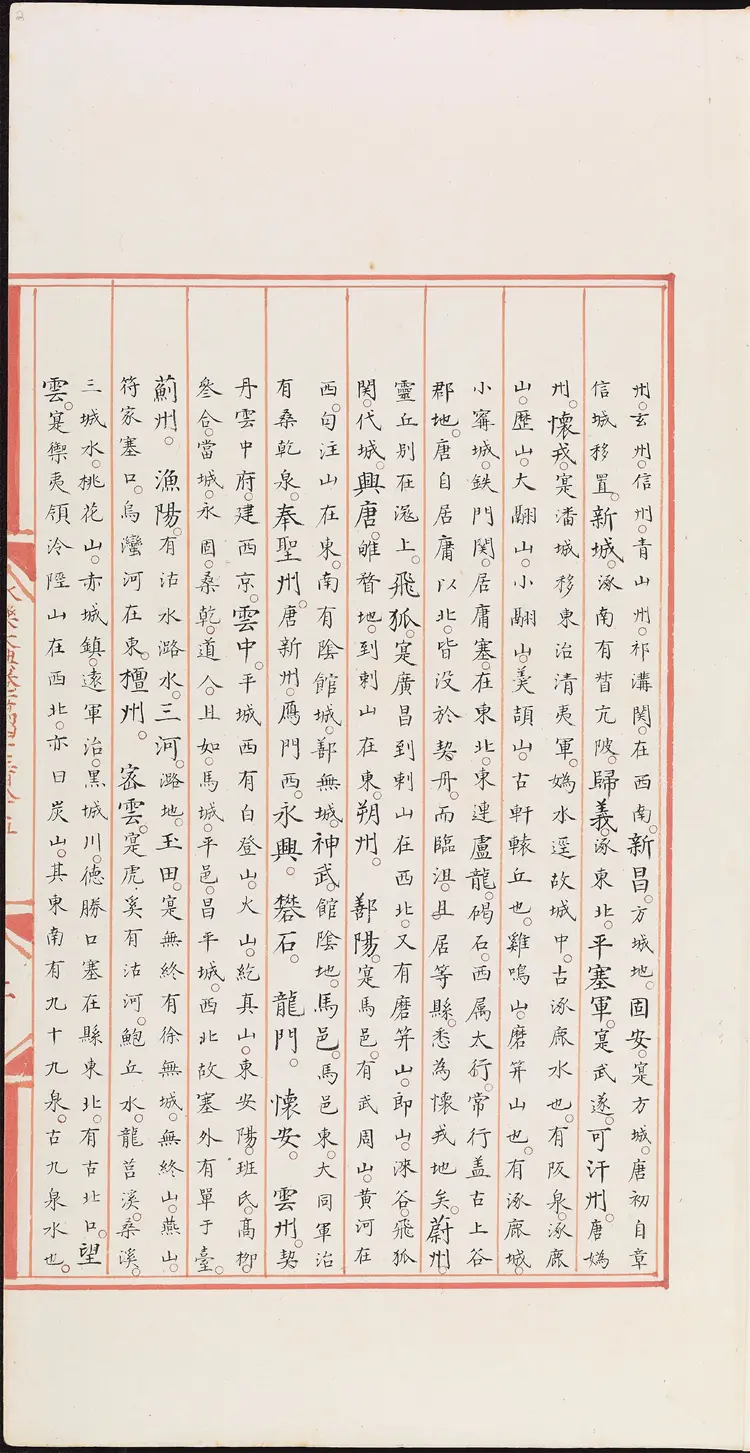 州。玄州。信州。青山州。祁溝関。在西南。新昌。方城地。固安。寔方城。唐初自章
信城移置。新城。涿南有督亢陂。歸義。涿東北。平塞軍。寔武遂。可汗州。唐媯
州。懷戎。寔潘城移東治清夷軍。媯水逕故城中。古涿鹿水也。有阪泉。涿鹿
山。歷山。大翮山。小翮山。羹頡山。古軒轅丘也。雞鳴山。磨笄山也。有涿鹿城。
小甯城。鉄門関。居庸塞。在東北。東連盧龍。碣石。西属太行。常行盖古上谷
郡地。唐自居庸以北。皆没於契丹。而臨沮。且居等縣。悉為懷戎地矣。蔚州。
靈丘别在滱上。飛狐。寔廣昌到剌山在西北。又有磨笄山。即山。淶谷。飛狐
関。代城。興唐。雊瞀地。到剌山在東。朔州。鄯陽。寔馬邑。有武周山。黄河在
西。句注山在東。南有陰館城。鄯無城。神武。館陰地。馬邑。馬邑東。大同軍治
有桑乾泉。奉聖州。唐新州。鴈門西。永興。礬石。龍門。懷安。雲州。契
丹雲中府。建西京。雲中。平城西有白登山。火山。紇真山。東安陽。班氏。髙柳
叅合。當城。永固。桑乾。道人。且如。馬城。平邑。昌平城。西北故塞外有單于臺。
薊州。漁陽。有沽水潞水。三河。潞地。玉田。寔無終有徐無城。無終山。燕山。
符家塞口。烏灤河在東。檀州。宻雲。寔虎奚有沽河。鮑丘水。龍莒溪。桑溪。
三城水。桃花山。赤城鎮。逺軍治。黒城川。徳勝口塞在縣東北。有古北口。望
雲。寔禦夷領泠陘山在西北。亦曰炭山。其東南有九十九泉。古九泉水也。